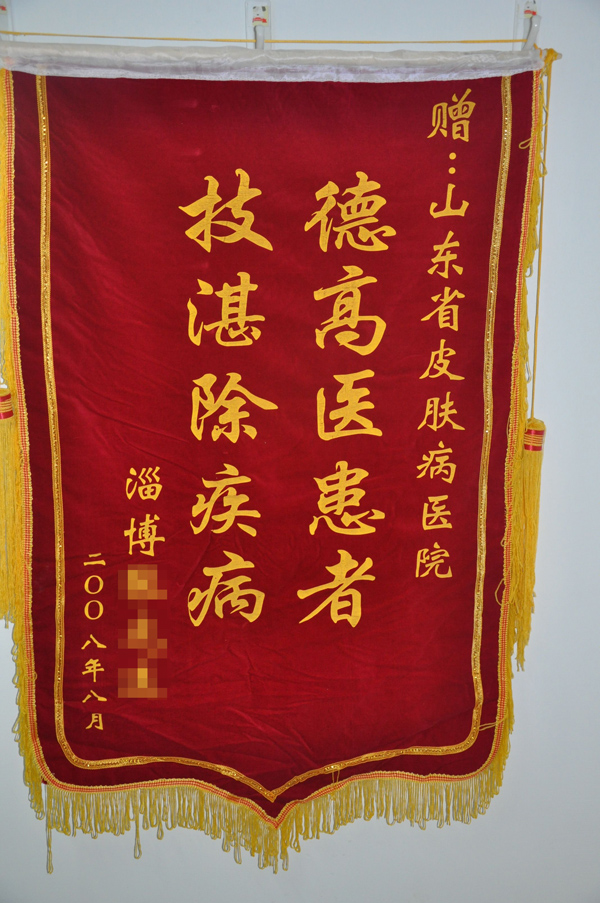 赠：山东省皮肤病医院
德高医患者
技湛除疾病
淄博
二〇〇八年八月